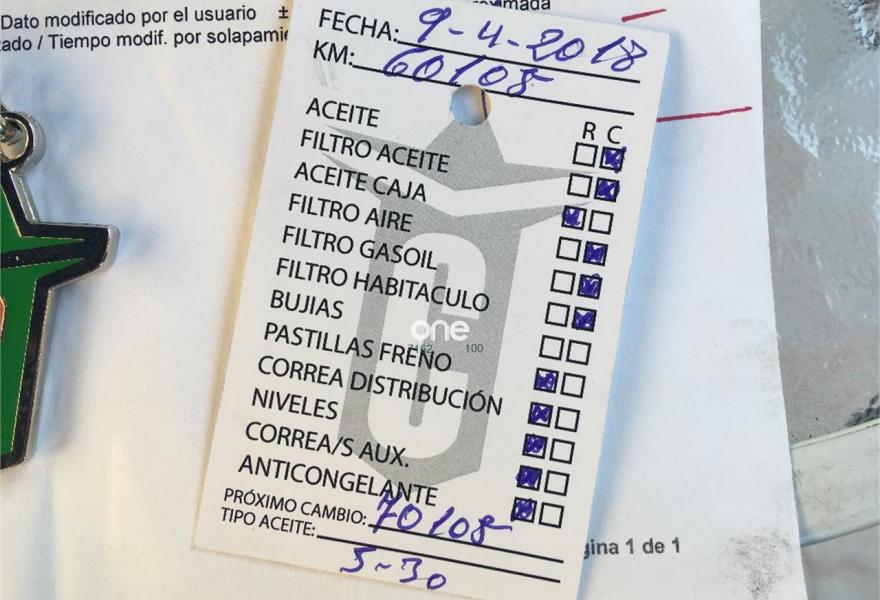 Dato modificado por el usuario ±
/ Tiempo modif. por
FECHA: 9-4-2018
KM: 60108
R C
ACEITE
FILTRO ACEITE
ACEITE CAJA
FILTRO AIRE
FILTRO GASOIL
FILTRO HABITACULO
BUJIAS
PASTILLAS FRENO
CORREA DISTRIBUCIÓN
NIVELES
CORREA/S AUX.
ANTICONGELANTE
PRÓXIMO CAMBIO: 70108
TIPO ACEITE:
5-30
1 de 1
one
100